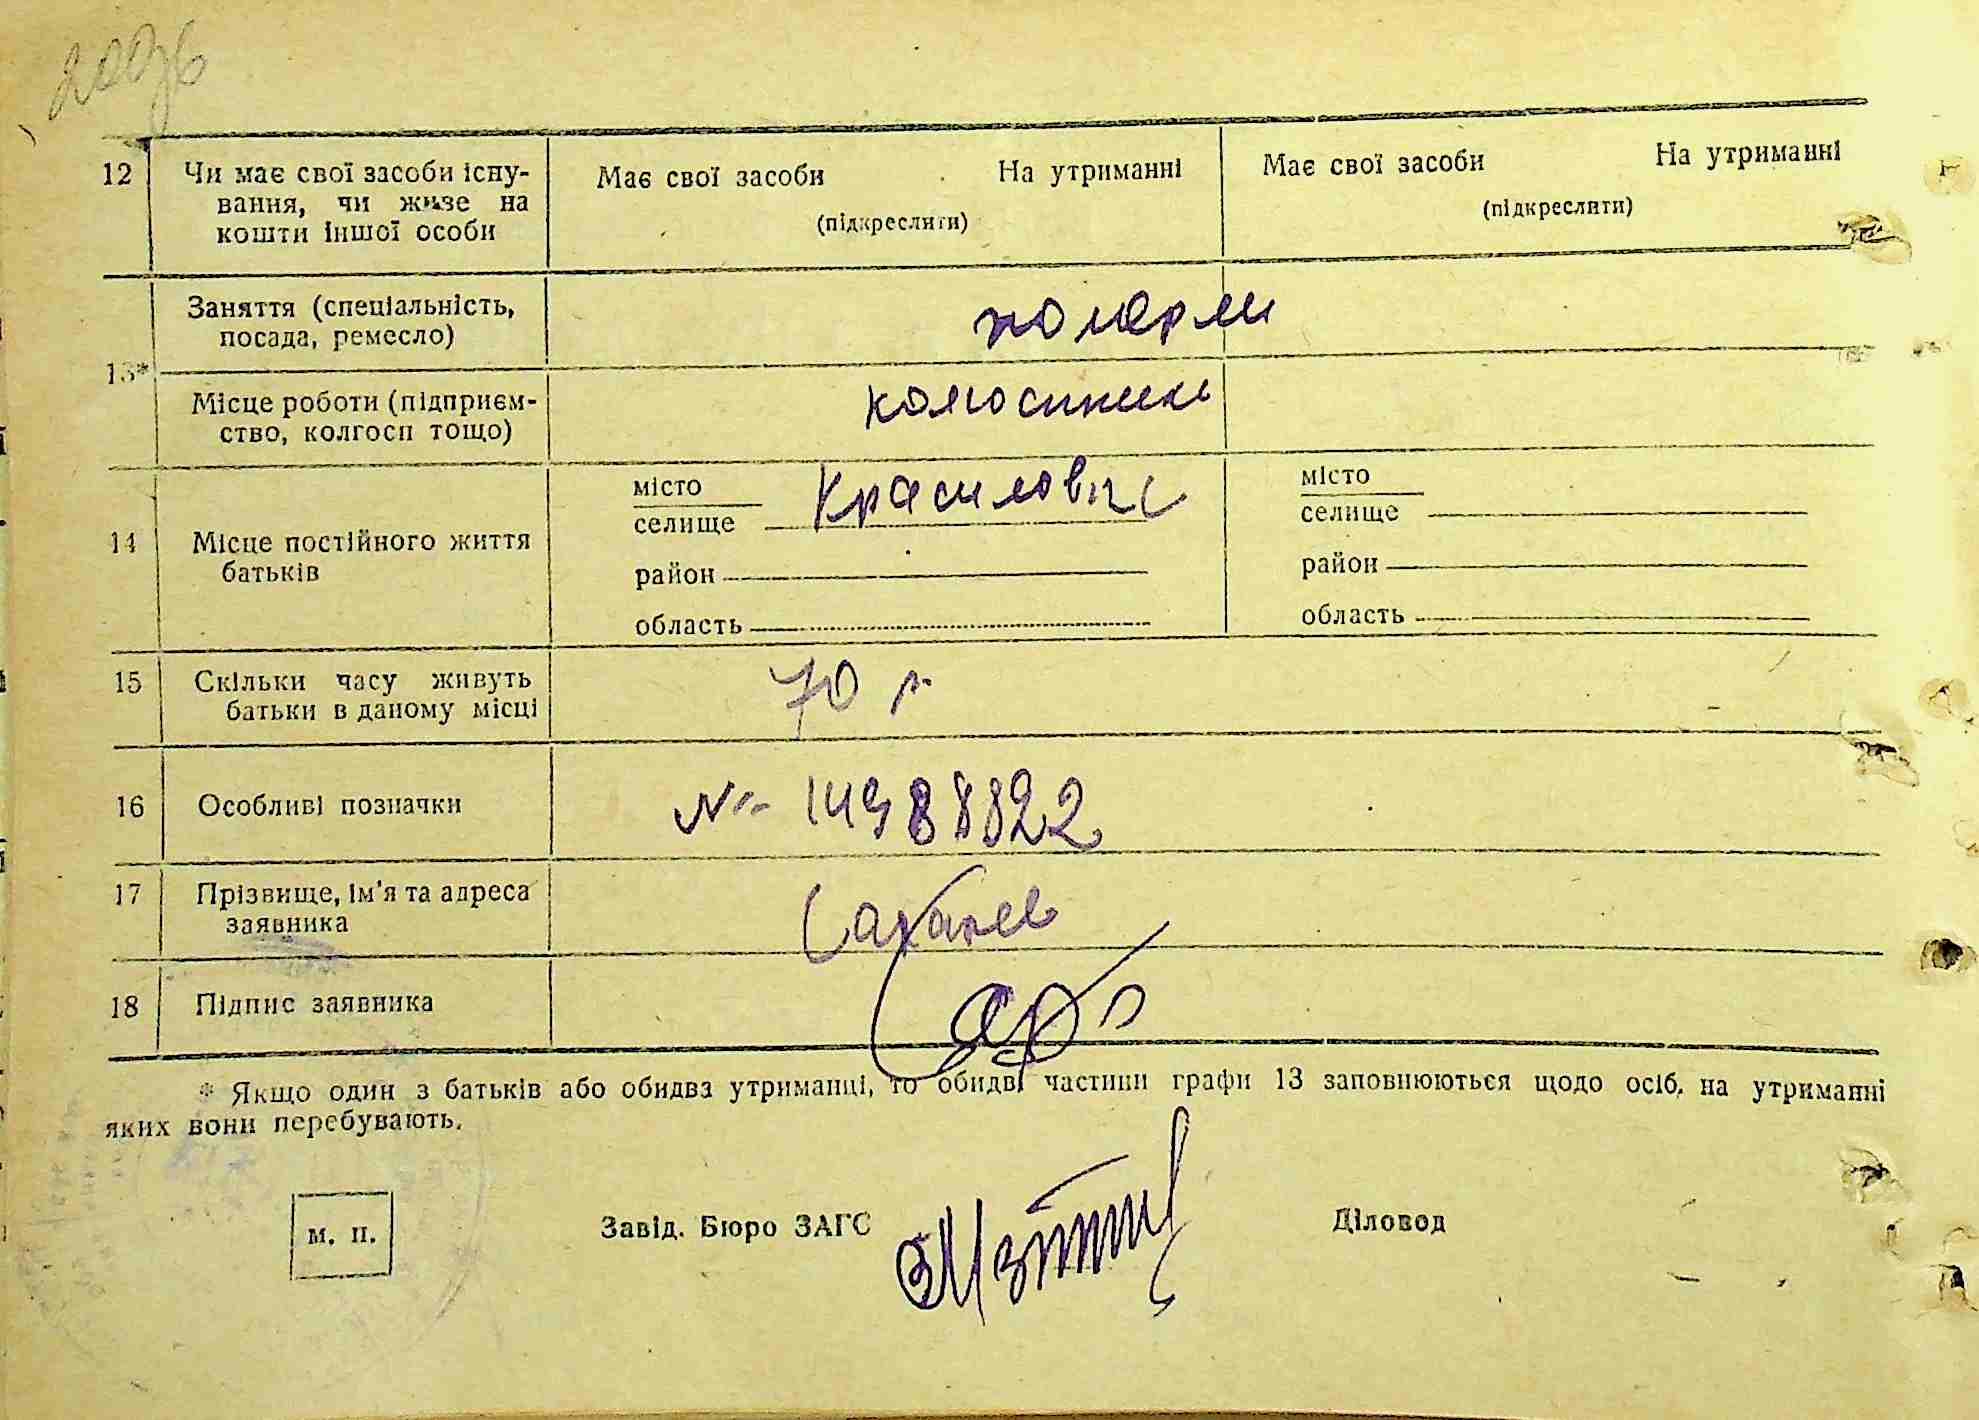 12
Чи має свої засоби існу-
вання, чи живе на
кошти іншої особи
Має свої засоби На утриманні
(підкреслити)
Має свої засоби На утриманні
(підкреслити)
13*
Заняття (спеціальність,
посада, ремесло)
Місце роботи (підприєм-
ство, колгосп тощо)
14
Місце постійного життя
батьків
місто
селище
район
область
місто
селище
район
область
15
Скільки часу живуть
батьки в даному місці
70 г.
16
Особливі позначки
№ 14988822
17
Прізвище, ім'я та адреса
заявника
18
Підпис заявника
* Якщо один з батьків або обидва утриманці, то обидві частини графи 13 заповнюються щодо осіб, на утриманні
яких вони перебувають.
м. п.
Завід. Бюро ЗАГС
Діловод